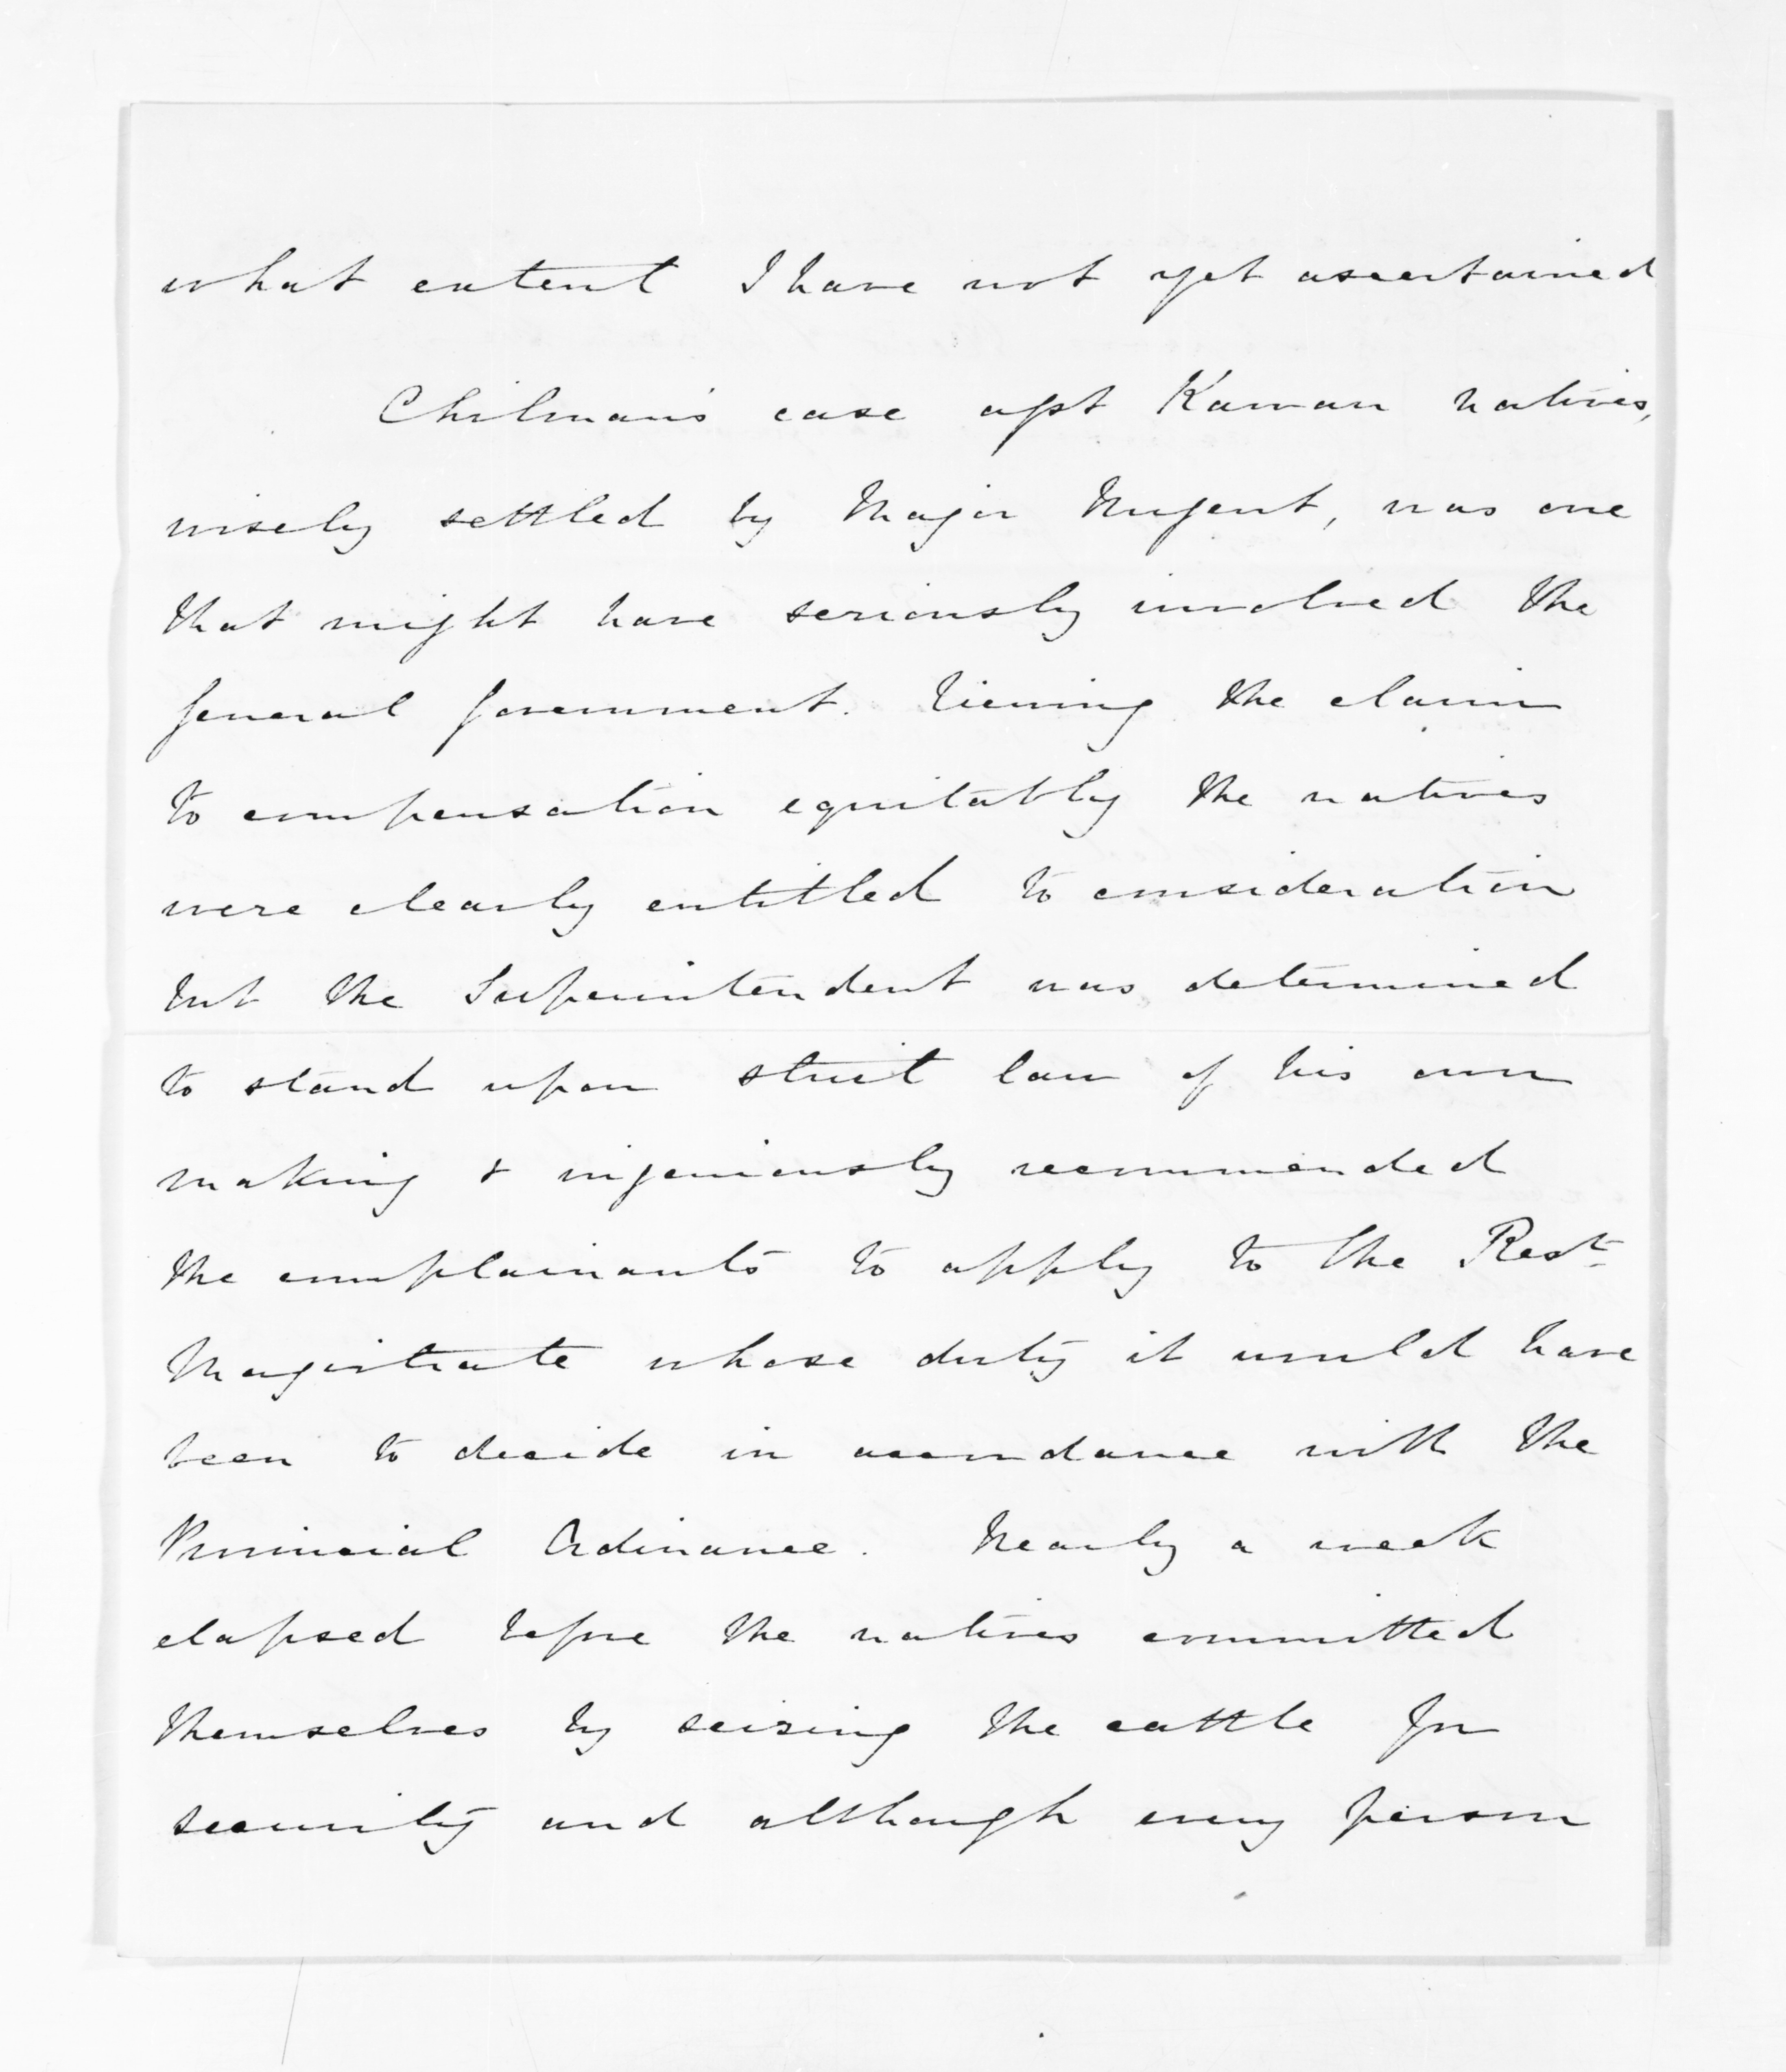 what extent I have not yet ascertained
Chilman's case agst Kawau natives,
wisely settled by Major Nugent, was one
that might have seriously involved the
general government. Viewing the claim
to compensation equitably the natives
were clearly entitled to consideration
but the Superintendent was determined
to stand upon strict law of his own
making & ingeniously recommended
the complainants to apply to the Rest
Magistrate whose duty it would have
been to decide in accordance with the
Provincial Ordinance. Nearly a week
elapsed before the natives committed
themselves by seizing the cattle for
security and although every person